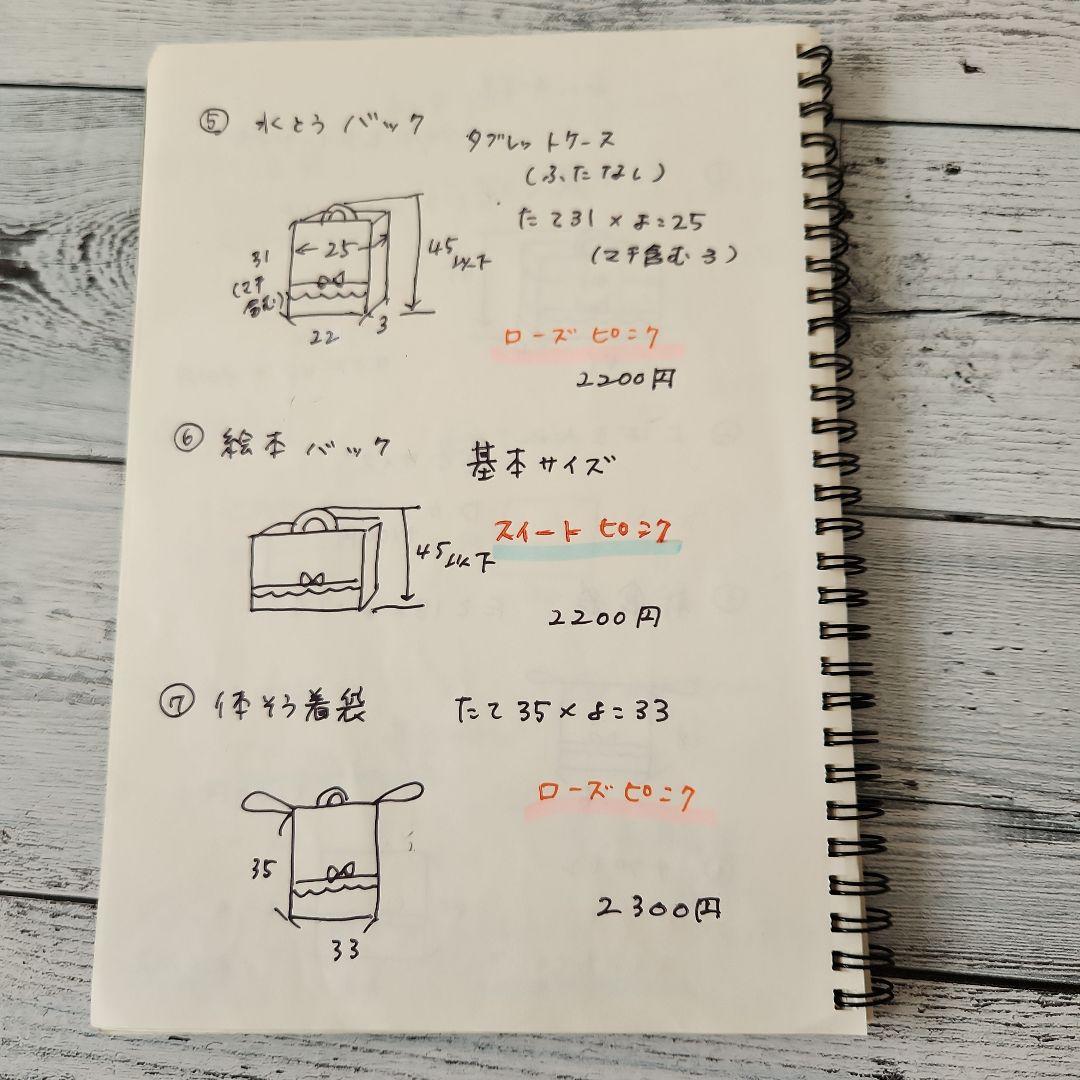 ⑤ 水とう バック
タブレットケース
(ふたなし)
たて31×よこ25
(マチ含む3)
31
(マチ
含む)
25
45
以下
22
3
ローズ ピンク
2200円
⑥ 絵本 バック
基本サイズ
45以下
スイート ピンク
2200円
⑦ 体そう着袋
たて35×よこ33
35
33
ローズ ピンク
2300円